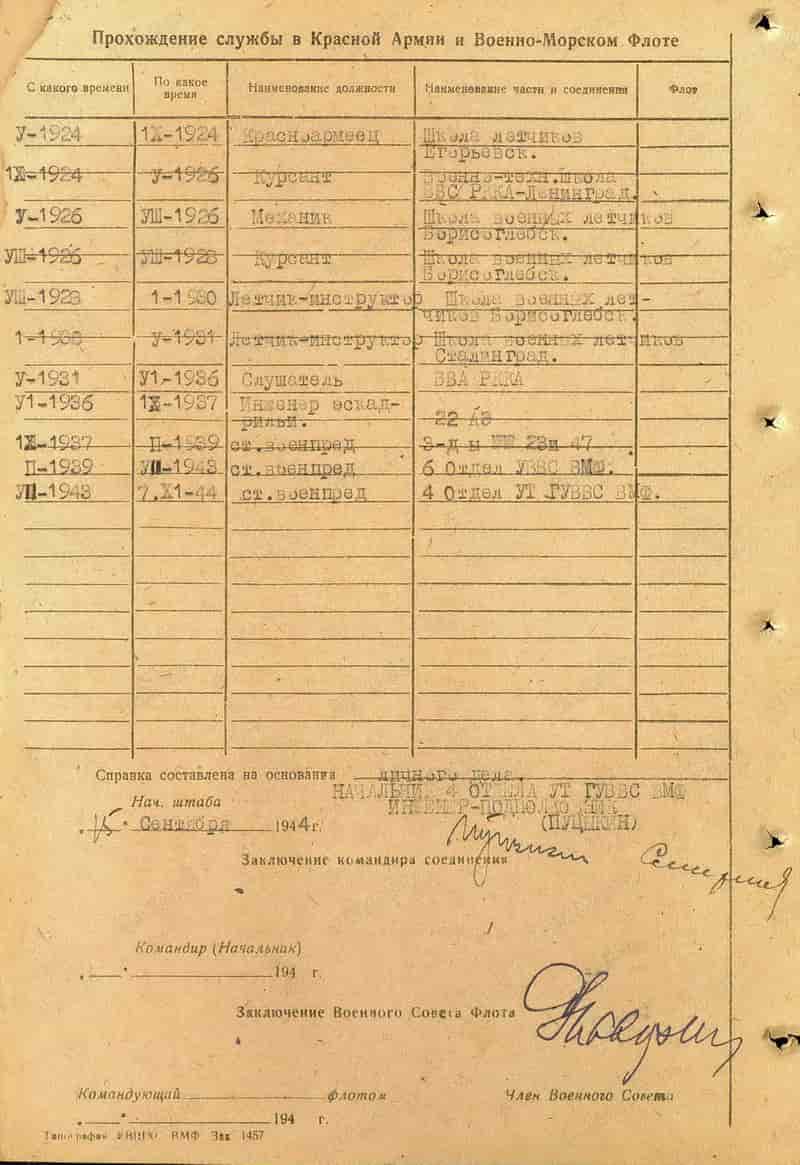 Прохождение службы в Красной Армии и Военно-Морском Флоте
С какого времени По какое время Наименование должности Наименование части и соединения Флот
У-1924 1Х-1924 Красноармеец Школа летчиков
Егорьевск.
1Х-1924 У-1926 Курсант Военно-техн.школа
ВВС РККА-Ленинград.
У-1926 УШ-1926 Механик Школа военных летчиков
Борисоглебск.
УШ-1926 УШ-1928 Курсант Школа военных летчиков
Борисоглебск.
УШ-1928 1-1930 Летчик-инструктор Школа военных лет-
чиков Борисоглебск.
1-1930 У-1931 Летчик-инструктор Школа военных летчиков
Сталинград.
У-1931 У1-1936 Слушатель ВВА РККА
У1-1936 1Х-1937 Инженер эскад-
рильи. 22 АЭ
1Х-1937 П-1939 ст.военпред З-д ы №№ 23и 47
П-1939 УП-1943 ст.военпред 6 Отдел УВВС ВМФ.
УП-1943 7.Х1-44 ст.военпред 4 Отдел УТ ГУВВС ВМФ.
Справка составлена на основании личного дела.
НАЧАЛЬНИК 4 ОТДЕЛА УТ ГУВВС ВМФ
Нач. штаба ИНЖЕНЕР-ПОДПОЛКОВНИК
„15“ Сентября 1944г.
Заключение командира соединения
Командир (Начальник)
„ “ 194 г.
Заключение Военного Совета Флота
Командующий флотом Член Военного Совета
„ “ 194 г.
ВМФ Зак 1457